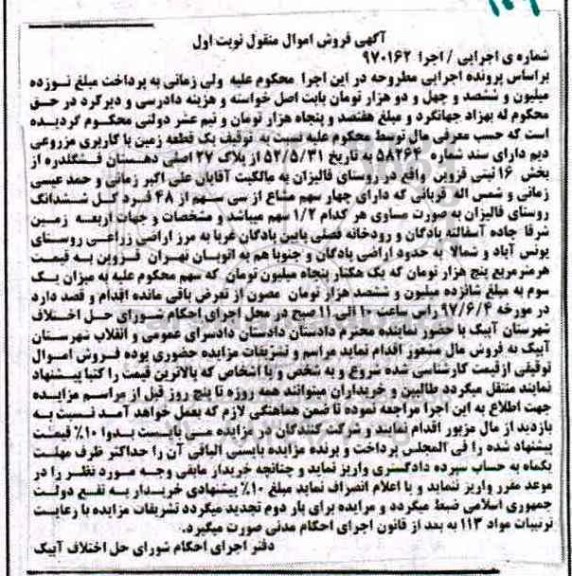 ۱۰۹
آگهی فروش اموال منقول نوبت اول
شماره ی اجرایی / اجرا ۹۷۰۱۶۲
براساس پرونده اجرایی مطروحه در این اجرا محکوم علیه ولی زمانی به پرداخت مبلغ نوزده
میلیون و ششصد و چهل و دو هزار تومان بابت اصل خواسته و هزینه دادرسی و دیرکرد در حق
محکوم له بهزاد جهانگرد و مبلغ هفتصد و پنجاه هزار تومان و نیم عشر دولتی محکوم گردیده
است که حسب معرفی مال توسط محکوم علیه نسبت به توقیف یک قطعه زمین با کاربری مزروعی
دیم دارای سند شماره ۵۸۲۶۴ به تاریخ ۵۲/۵/۳۱ از پلاک ۲۷ اصلی دهستان قشگلدره از
بخش ۱۶ ثبتی قزوین واقع در روستای فالیزان به مالکیت آقایان علی اکبر زمانی و حمد عیسی
زمانی و شمس اله قربانی که دارای چهار سهم مشاع از سی سهم از ۴۸ فرد کل ششدانگ
روستای فالیزان به صورت مساوی هر کدام ۱/۲ سهم میباشد و مشخصات و جهات اربعه زمین
شرقا جاده آسفالته پادگان و رودخانه فصلی پایین پادگان غربا به مرز اراضی زراعی روستای
یونس آباد و شمالا به حدود اراضی پادگان و جنوبا هم به اتوبان تهران قزوین به قیمت
هرمترمربع پنج هزار تومان که یک هکتار پنجاه میلیون تومان که سهم محکوم علیه به میزان یک
سوم به مبلغ شانزده میلیون و ششصد هزار تومان مصون از تعرض باقی مانده اقدام و قصد دارد
در مورخه ۹۷/۶/۴ راس ساعت ۱۰ الی ۱۱ صبح در محل اجرای احکام شورای حل اختلاف
شهرستان آبیک با حضور نماینده محترم دادستان دادستان دادسرای عمومی و انقلاب شهرستان
آبیک به فروش مال مشعور اقدام نماید مراسم و تشریفات مزایده حضوری بوده فروش اموال
توقیفی ازقیمت کارشناسی شده شروع و به شخص و یا اشخاص که بالاترین قیمت را کتبا پیشنهاد
نمایند منتقل میگردد طالبین و خریداران میتوانند همه روزه تا پنج روز قبل از مراسم مزایده
جهت اطلاع به این اجرا مراجعه نموده تا ضمن هماهنگی لازم که بعمل خواهد آمد نسبت به
بازدید از مال مزبور اقدام نمایند و شرکت کنندگان در مزایده می بایست بدوا ۱۰٪ قیمت
پیشنهاد شده را فی المجلس پرداخت و برنده مزایده بایستی الباقی آن را حداکثر ظرف مهلت
یکماه به حساب سپرده دادگستری واریز نماید و چنانچه خریدار مابقی وجه مورد نظر را در
موعد مقرر واریز ننماید و یا اعلام انصراف نماید مبلغ ۱۰٪ پیشنهادی خریدار به نفع دولت
جمهوری اسلامی ضبط میگردد و مزایده برای بار دوم تجدید میگردد تشریفات مزایده با رعایت
ترتیبات مواد ۱۱۳ به بعد از قانون اجرای احکام مدنی صورت میگیرد.
دفتر اجرای احکام شورای حل اختلاف آبیک